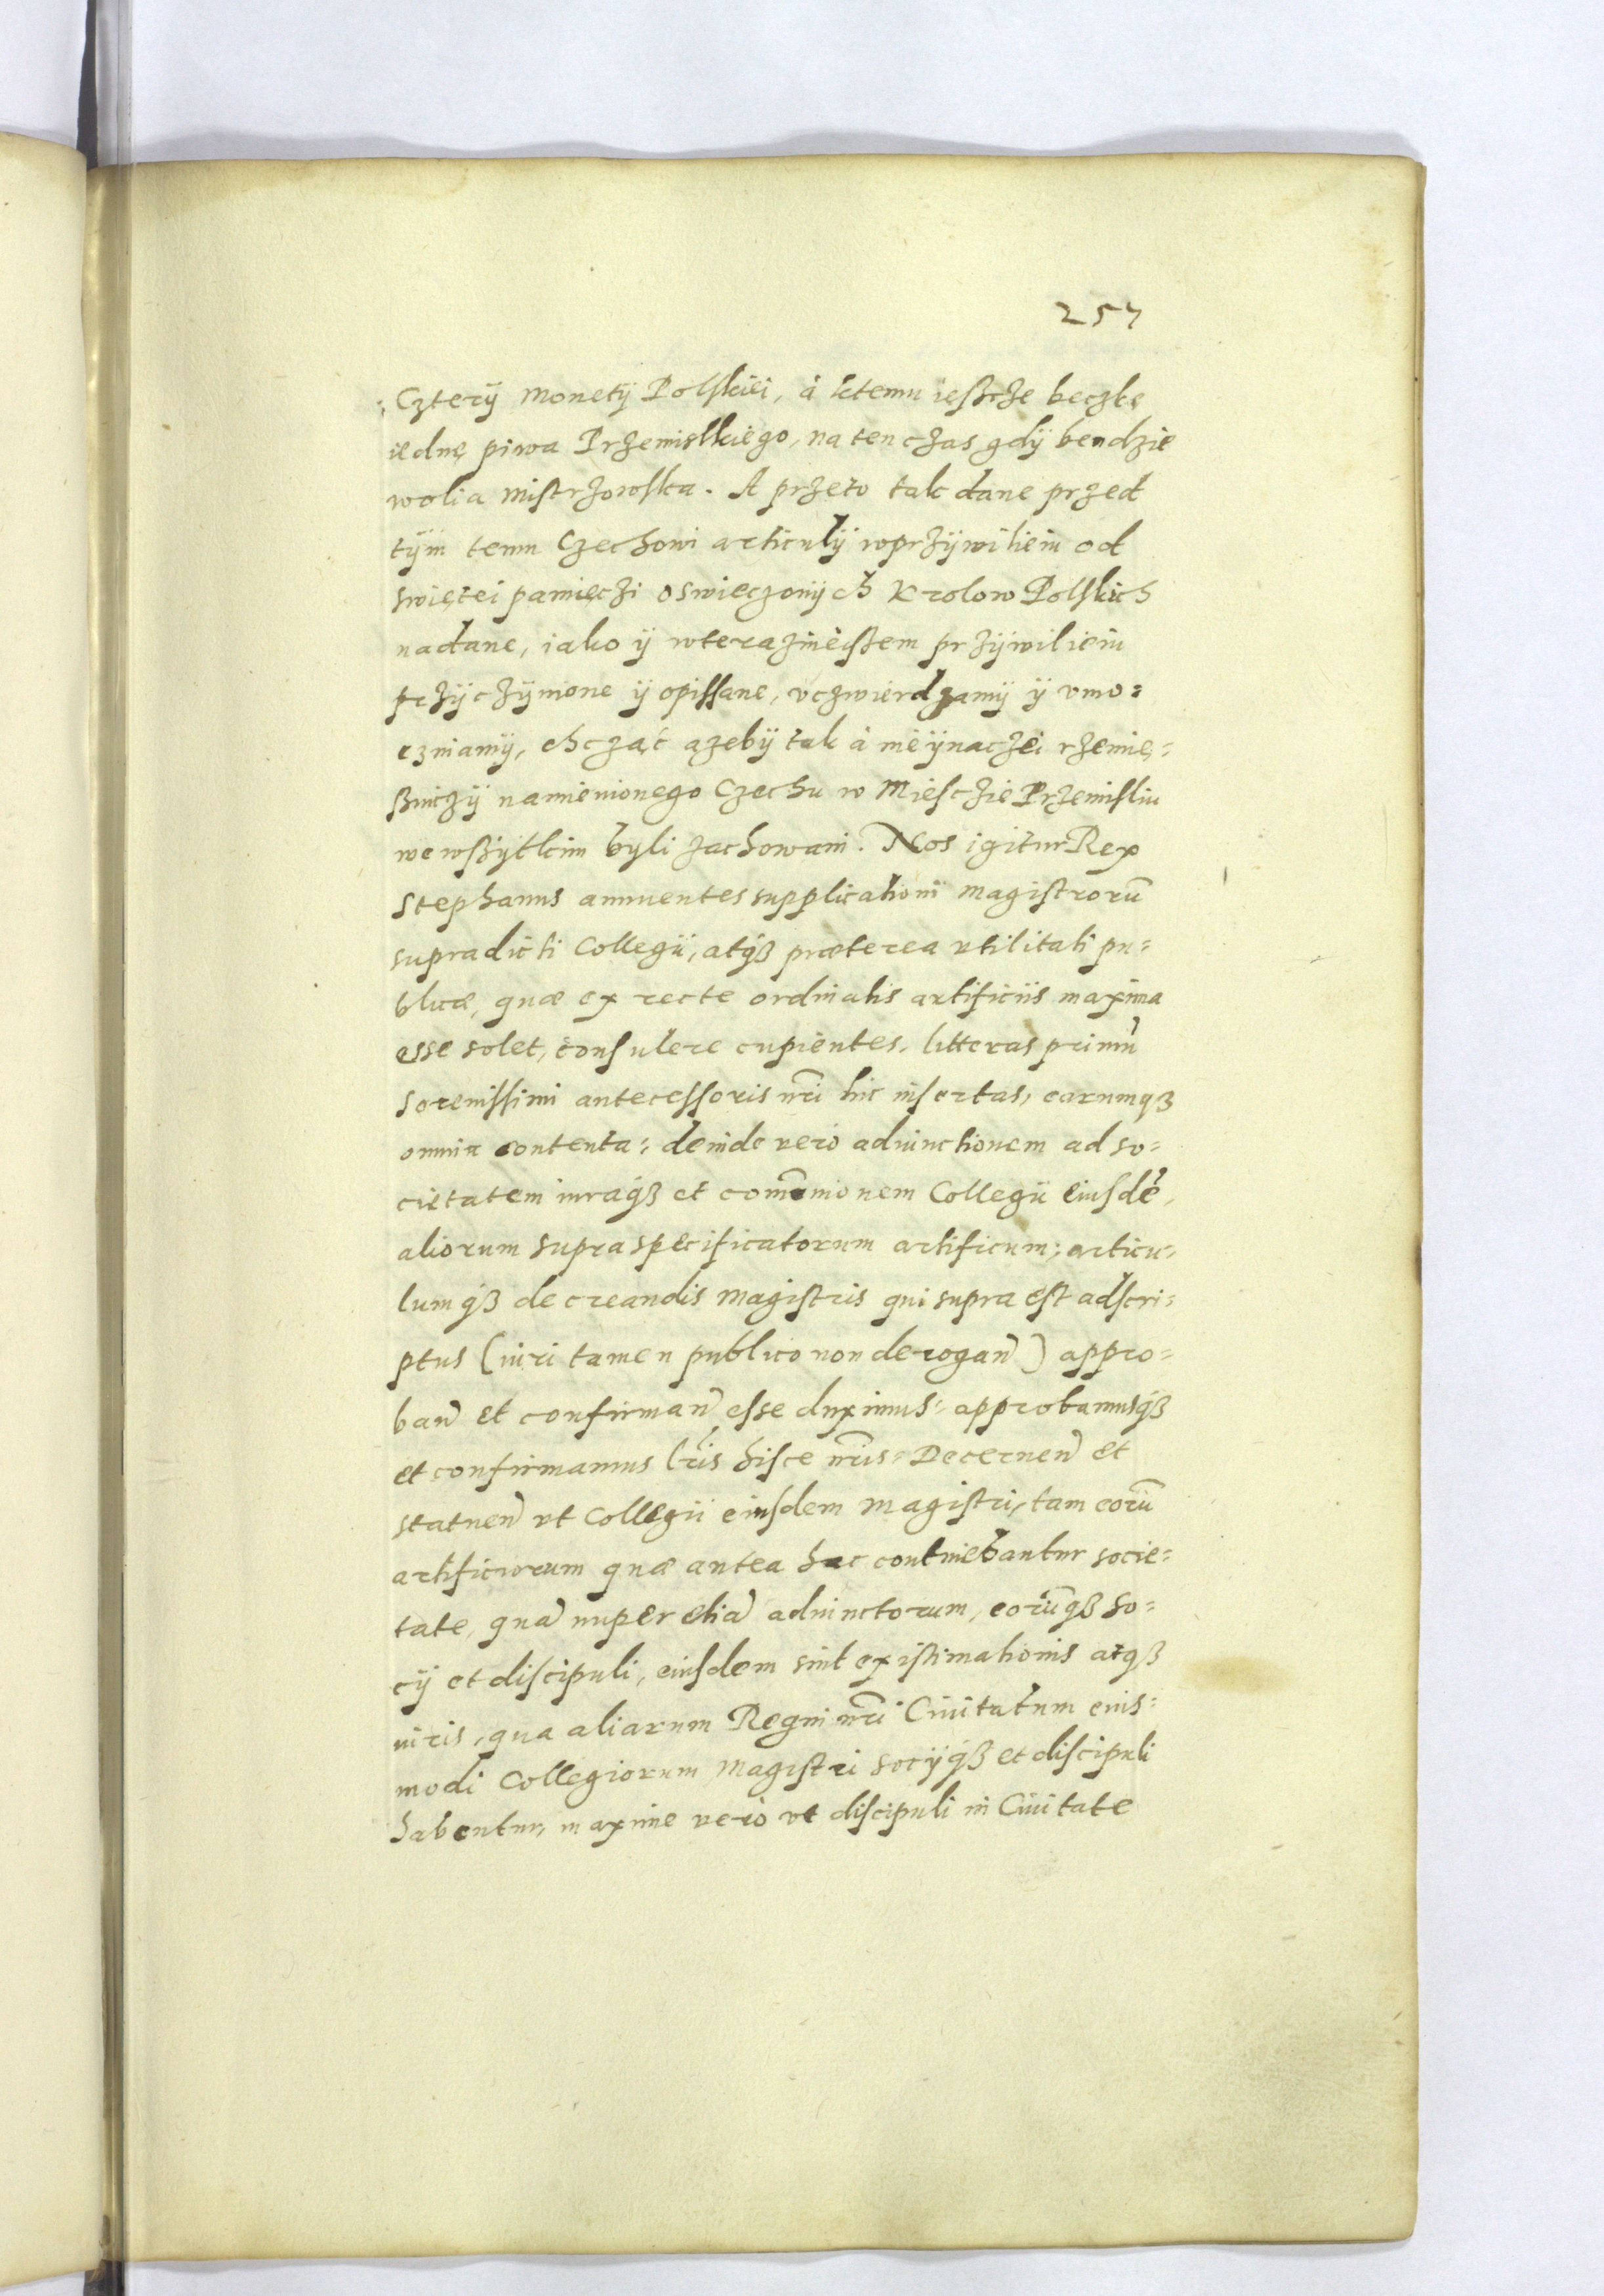 257
Cztery Monetÿ Polskiei, á ktemu ieszcże beczkę
iednę piwa Przemislkiego, na ten czas gdÿ bendzie
wolia mistrzowska. A przeto tak dane przed
tÿm temu Czechowi articulÿ wprzÿwilieiu od
swiętei pamięczi oswieczonÿch Krolow Polskich
nadane, iako ÿ wteraznieiszem przÿwilieiu
przÿczÿnione ÿ opissane, vczwierdzamÿ ÿ vmo=
czniamÿ, chcząć azebÿ tak á nieÿnaczei rzemię=
sniczÿ namienionego Czechu w Miesczie Przemisliu
we wszÿtkim byli zachowani. Nos igitur Rex
Stephanus annuentes supplicationi magistrorū
supradicti Collegii, atqꝫ præterea vtilitati pu=
blicæ, quæ ex recte ordinatis artificiis maxima
esse solet, consulere cupientes, litteras primū
serenissimi antecessoris nri̅ hic insertas, earumqꝫ
omnia contenta: deinde vero adiunctionem ad so=
cietatem iuraqꝫ et com̅unionem Collegii eiusdē,
aliorum supra specificatorum artificum; articu=
lumqꝫ de creandis Magistris qui supra est adscri=
ptus (iuri tamen publico non derogan̄) appro=
ban̄ et confirman̄ esse duximus: approbamusqꝫ
et confirmamus lr̅is hisce nr̅is: Decernen̄ et
statuen̄ vt Collegii eiusdem magistri, tam eorū
artificiorum quæ antea hac continebantur socie=
tate, quā nuper etiā adiunctorum, eorūqꝫ so=
cÿ et discipuli, eiusdem sint existimationis atqꝫ
iuris, qua aliarum Regni nr̅i Ciuitatum eius=
modi Collegiorum Magistri socÿqꝫ et discipuli
habentur, maxime vero vt discipuli in Ciuitate